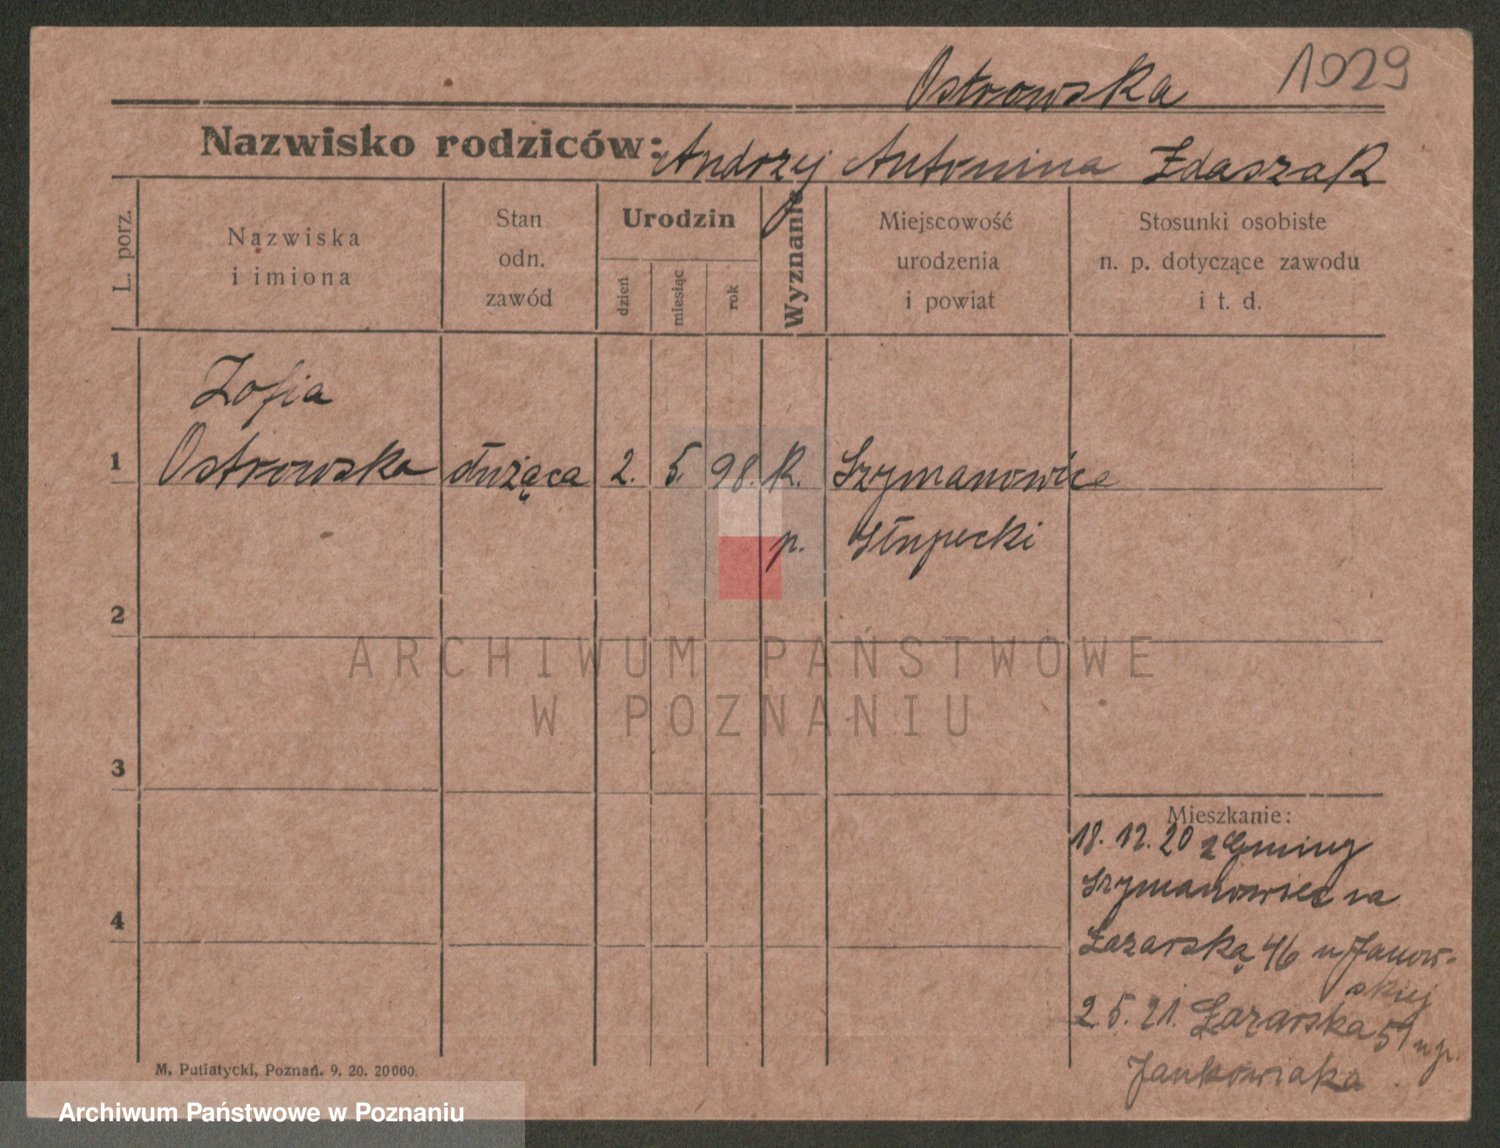 Ostrowska 1029
Nazwisko rodziców: Andrzej Antonina Zdaszak
L. porz.
Nazwiska
i imiona
Stan
odn.
zawód
Urodzin
dzień
miesiąc
rok
Wyznanie
Miejscowość
urodzenia
i powiat
Stosunki osobiste
n. p. dotyczące zawodu
i t. d.
Zofia
1 Ostrowska służąca 2. 5. 98. R. Szymanowice
p. Słupecki
2
ARCHIWUM PAŃSTWOWE
W POZNANIU
3
Mieszkanie:
18.12.20 z Gminy
Szymanowice na
4
Łazarską 46 u Janow-
skiej
2.5.21. Łazarska 59 u p.
Jankowiaka
M. Putiatycki, Poznań. 9. 20. 20000.
Archiwum Państwowe w Poznaniu